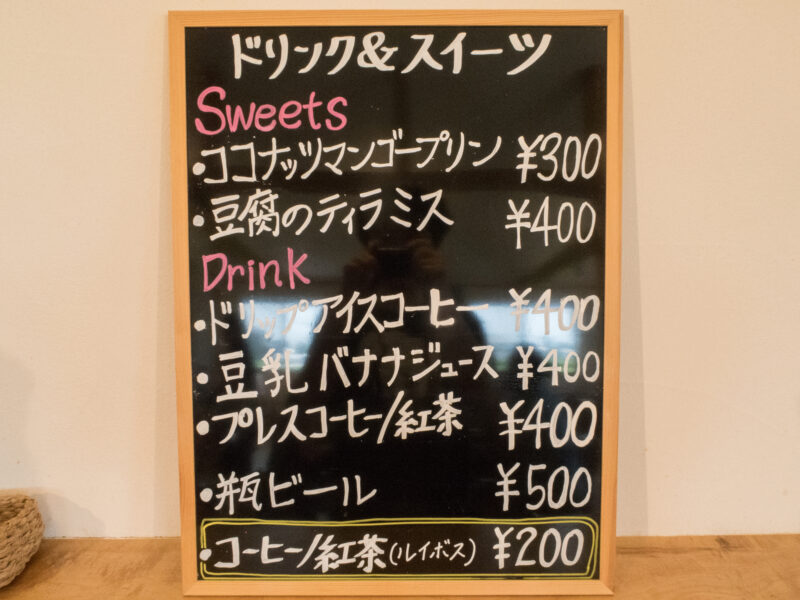 ドリンク&スイーツ
Sweets
・ココナッツマンゴープリン ¥300
・豆腐のティラミス ¥400
Drink
・ドリップアイスコーヒー ¥400
・豆乳バナナジュース ¥400
・プレスコーヒー/紅茶 ¥400
・瓶ビール ¥500
・コーヒー/紅茶(ルイボス) ¥200